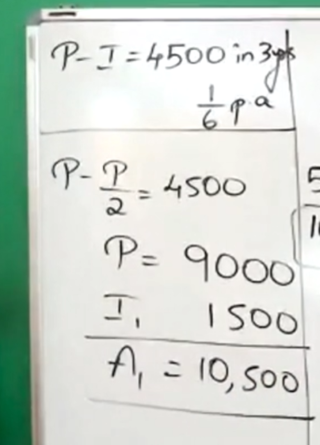 P - I = 4500 in 3yrs
1/6 p.a
P - P/2 = 4500
P = 9000
I₁ 1500
A₁ = 10,500
5
1